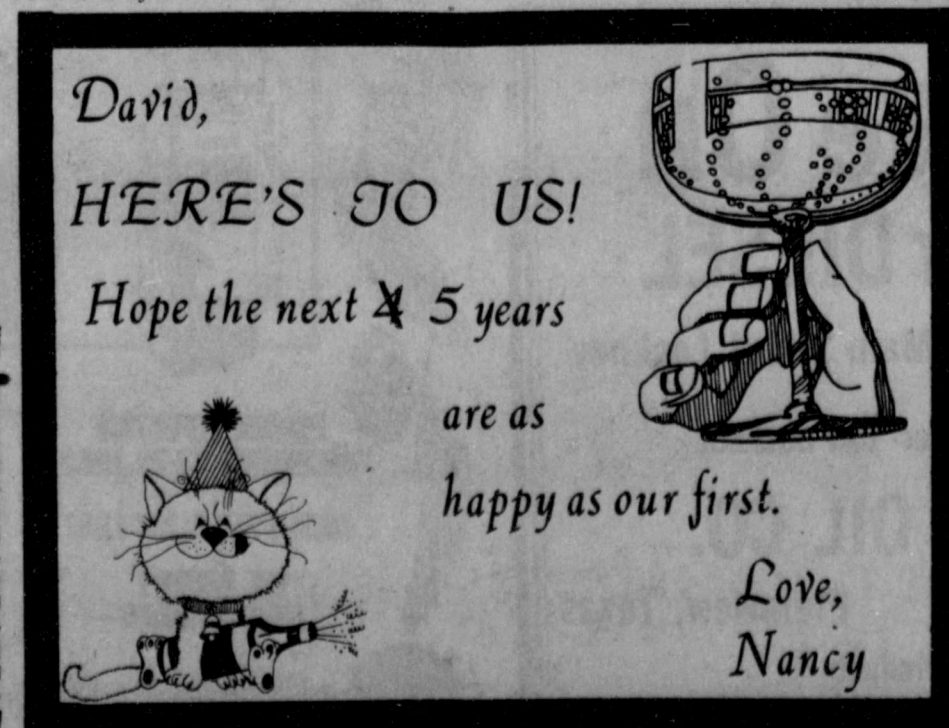 David,
HERE'S TO US!
Hope the next 4 5 years
are as
happy as our first.
Love,
Nancy